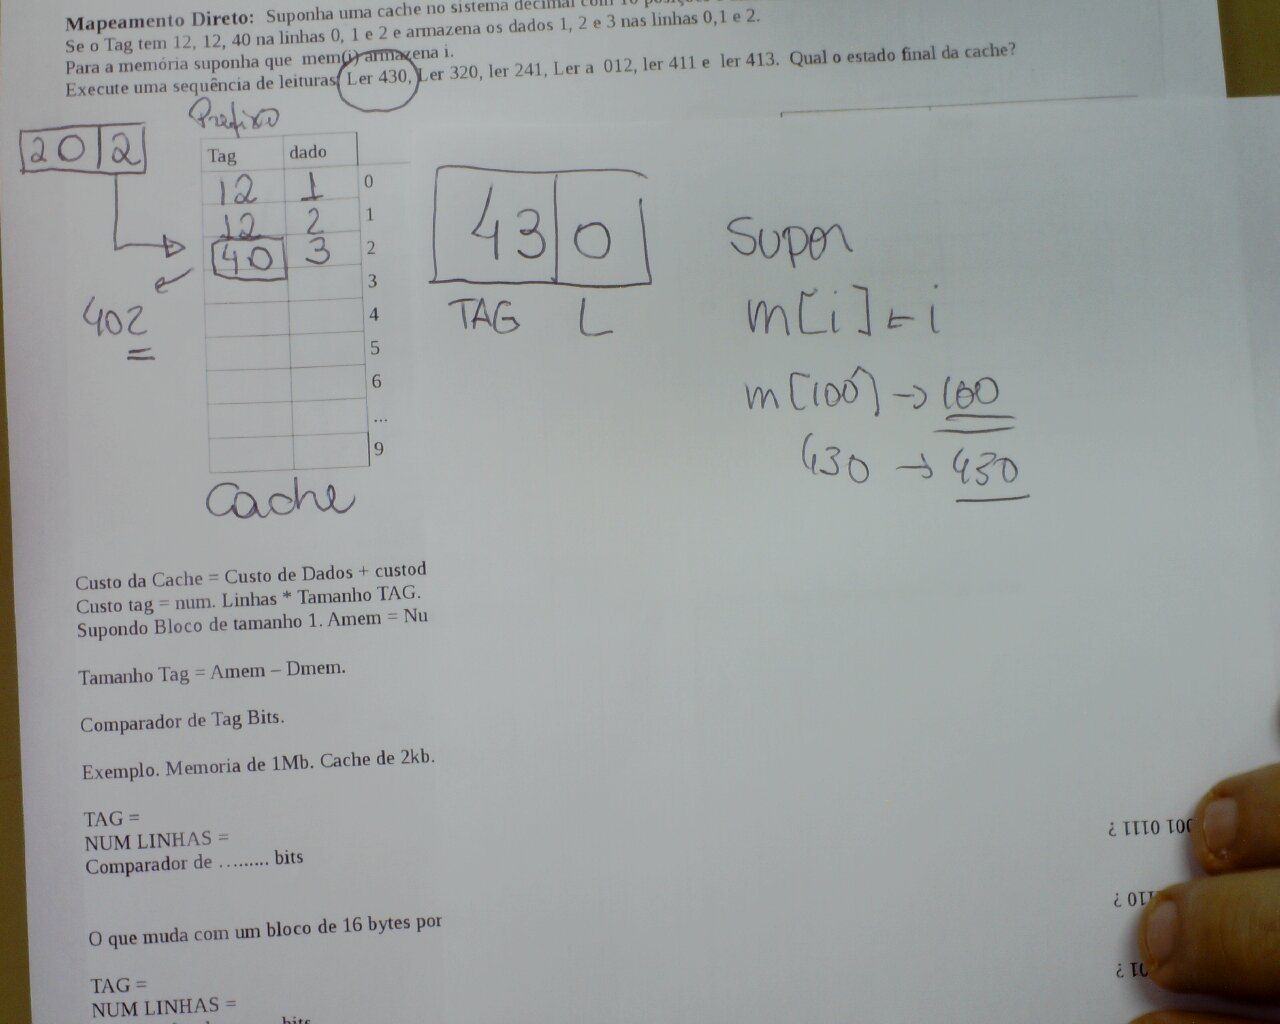 Mapeamento Direto: Suponha uma cache no sistema decimal com 10 posições
Se o Tag tem 12, 12, 40 na linhas 0, 1 e 2 e armazena os dados 1, 2 e 3 nas linhas 0,1 e 2.
Para a memória suponha que mem(i) armazena i.
Execute uma sequência de leituras Ler 430, Ler 320, ler 241, Ler a 012, ler 411 e ler 413. Qual o estado final da cache?
Prefixo
20 2
Tag dado
12 1 0
12 2 1
40 3 2
3
4
5
6
...
9
402
Cache
43 0
TAG L
Supor
m[i] ← i
m[100] → 100
430 → 430
Custo da Cache = Custo de Dados + custod
Custo tag = num. Linhas * Tamanho TAG.
Supondo Bloco de tamanho 1. Amem = Nu
Tamanho Tag = Amem – Dmem.
Comparador de Tag Bits.
Exemplo. Memoria de 1Mb. Cache de 2kb.
TAG =
NUM LINHAS =
Comparador de ……... bits
O que muda com um bloco de 16 bytes por
TAG =
NUM LINHAS =
bits
001 0111 ?
110 ?
01 ?